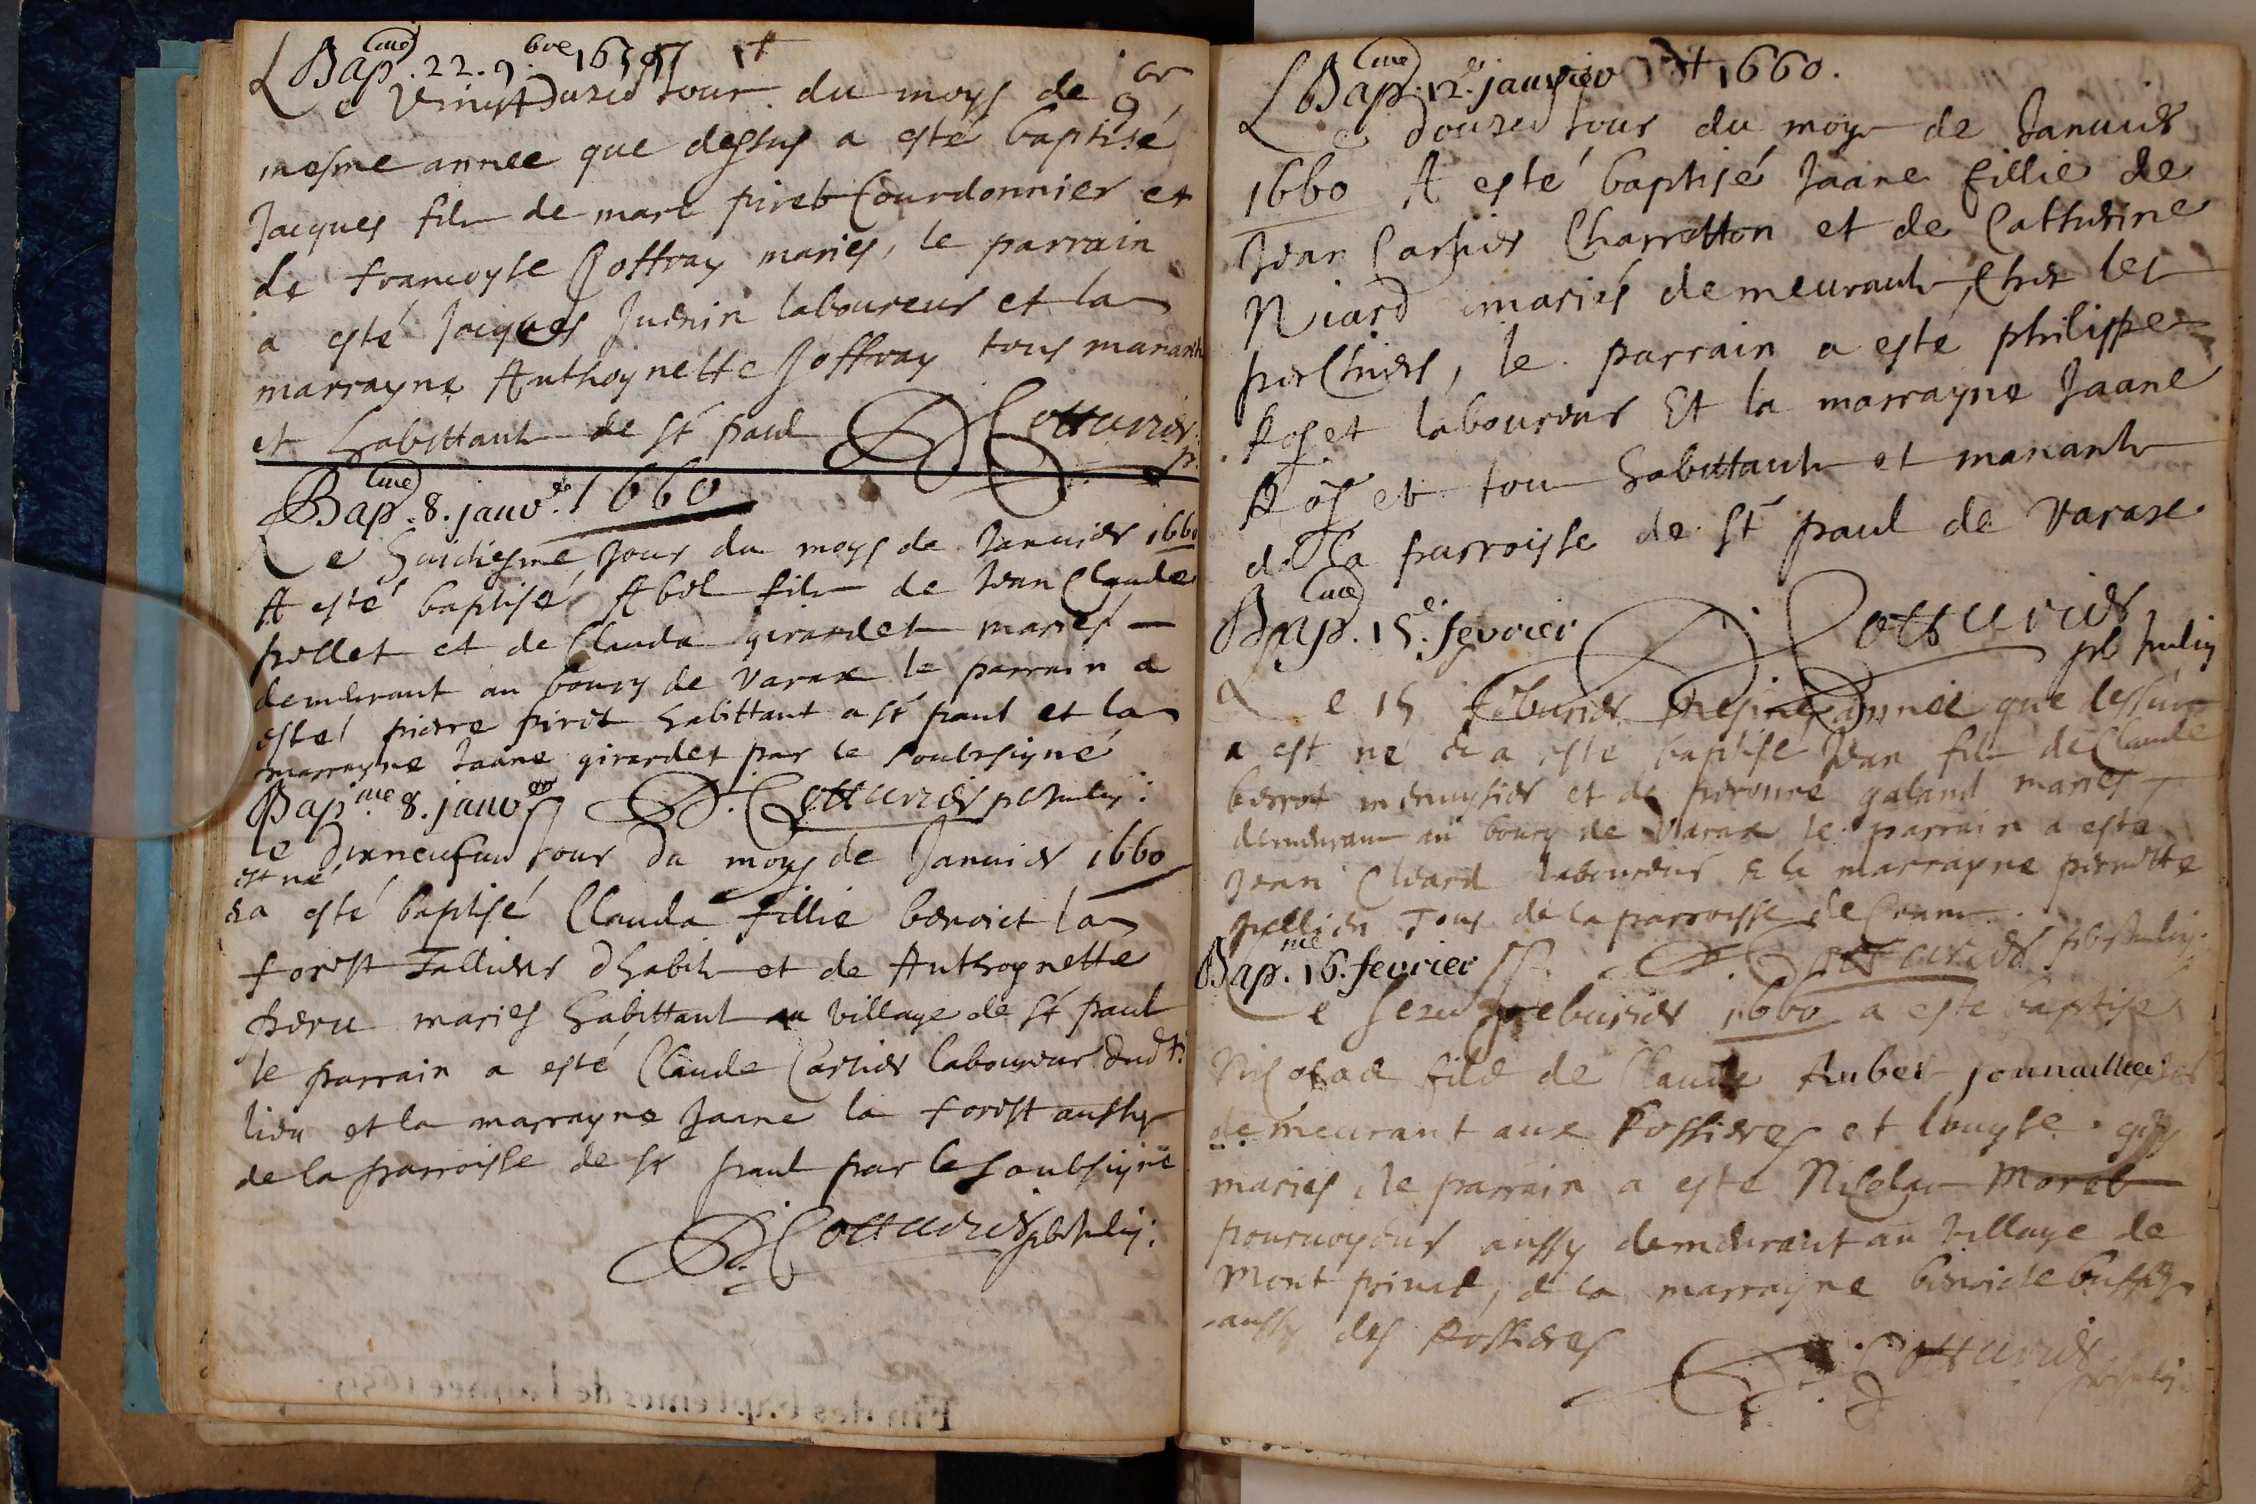 Bap.me 22. 9.bre 1659
Le Vingt Duzie Jour du moys de 9br
mesme annee que dessus a esté baptisé
Jacques fils de marc piret Courdonnier et
de francoyse Joffray mariés, le parrain
a esté Jacques Juenin laboureur et la
marrayne Anthoynette Joffray tous manants
et habittants de st paul D Cottarier p.
Bap.me 8. janv.er 1660
Le huictiesme Jour du moys de Januier 1660
A esté baptisé Abel fils de Jean Claude
pollet et de Clauda girardet mariés
demeurant au bourg de Varax le parrain a
esté pierre piret habittant a st paul et la
marrayne Jaane girardet par le soubsigné
Bap.me 8. janv.er D. Cottarier
Le Dixneufuie Jour du moys de Januier 1660
est né
& a esté baptisé Clauda fillie benoict la
forest Tallieur d'habits et de Anthoynette
peru mariés habittant au village de st paul
le parrain a esté Claude Carrier laboureur dudt.
lieu et la marrayne Jaane la forest aussy
de la parroisse de st paul par le soubsigné
D. Cottarier
Fin des baptêmes de l'année 1659.
Bap.me 12.e janvier 1660.
Le douzie Jour du moys de Januier
1660 A esté baptisé Jaane fillie de
Jean Carrier Charrotton et de Catherine
Niard mariés demeurants Chez les
perchiers, le parrain a esté philippe
Roset laboureur Et la marrayne Jaane
Roset tous habittants et manants
de la parroisse de st paul de Varax
Bap.me 15.e fevrier D. Cottarier
Le 15 feburier mesme année que dessus
a est né & a esté baptisé Jean fils de Claude
berrot menuysier et de peronne galand mariés
demeurant au bourg de Varax le parrain a esté
Jean Cleard laboureur & la marrayne pernette
Tous de la parroisse de
Bap.me 16. fevrier D. Cottarier
Le seze feburier 1660 a esté baptisé
Nicolas filz de Claude Auber jonnaillier
demeurant aux Rossieres et louyse guy
mariés, le parrain a esté Nicolas Morel
pouruoyeur aussy demeurant au village de
Mont , & la marrayne benoicte bussy
aussy des Rossieres
D. Cottarier